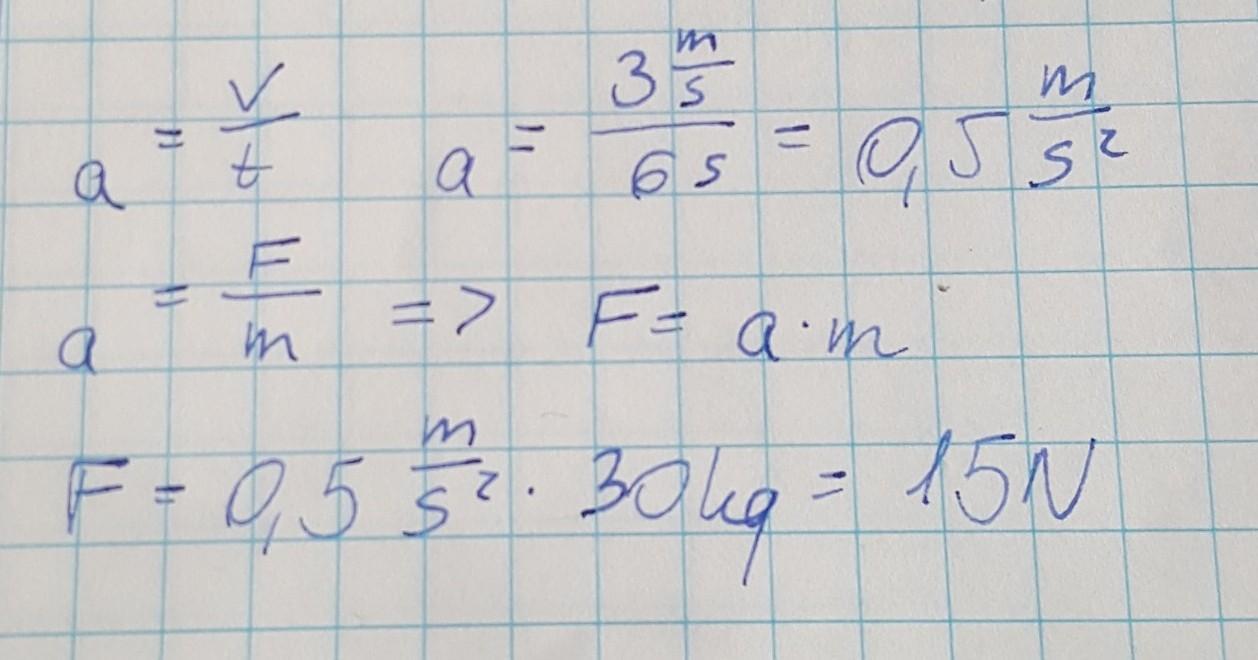 a = v/t   a = (3 m/s)/(6 s) = 0,5 m/s²
a = F/m => F = a · m
F = 0,5 m/s² · 30kg = 15N